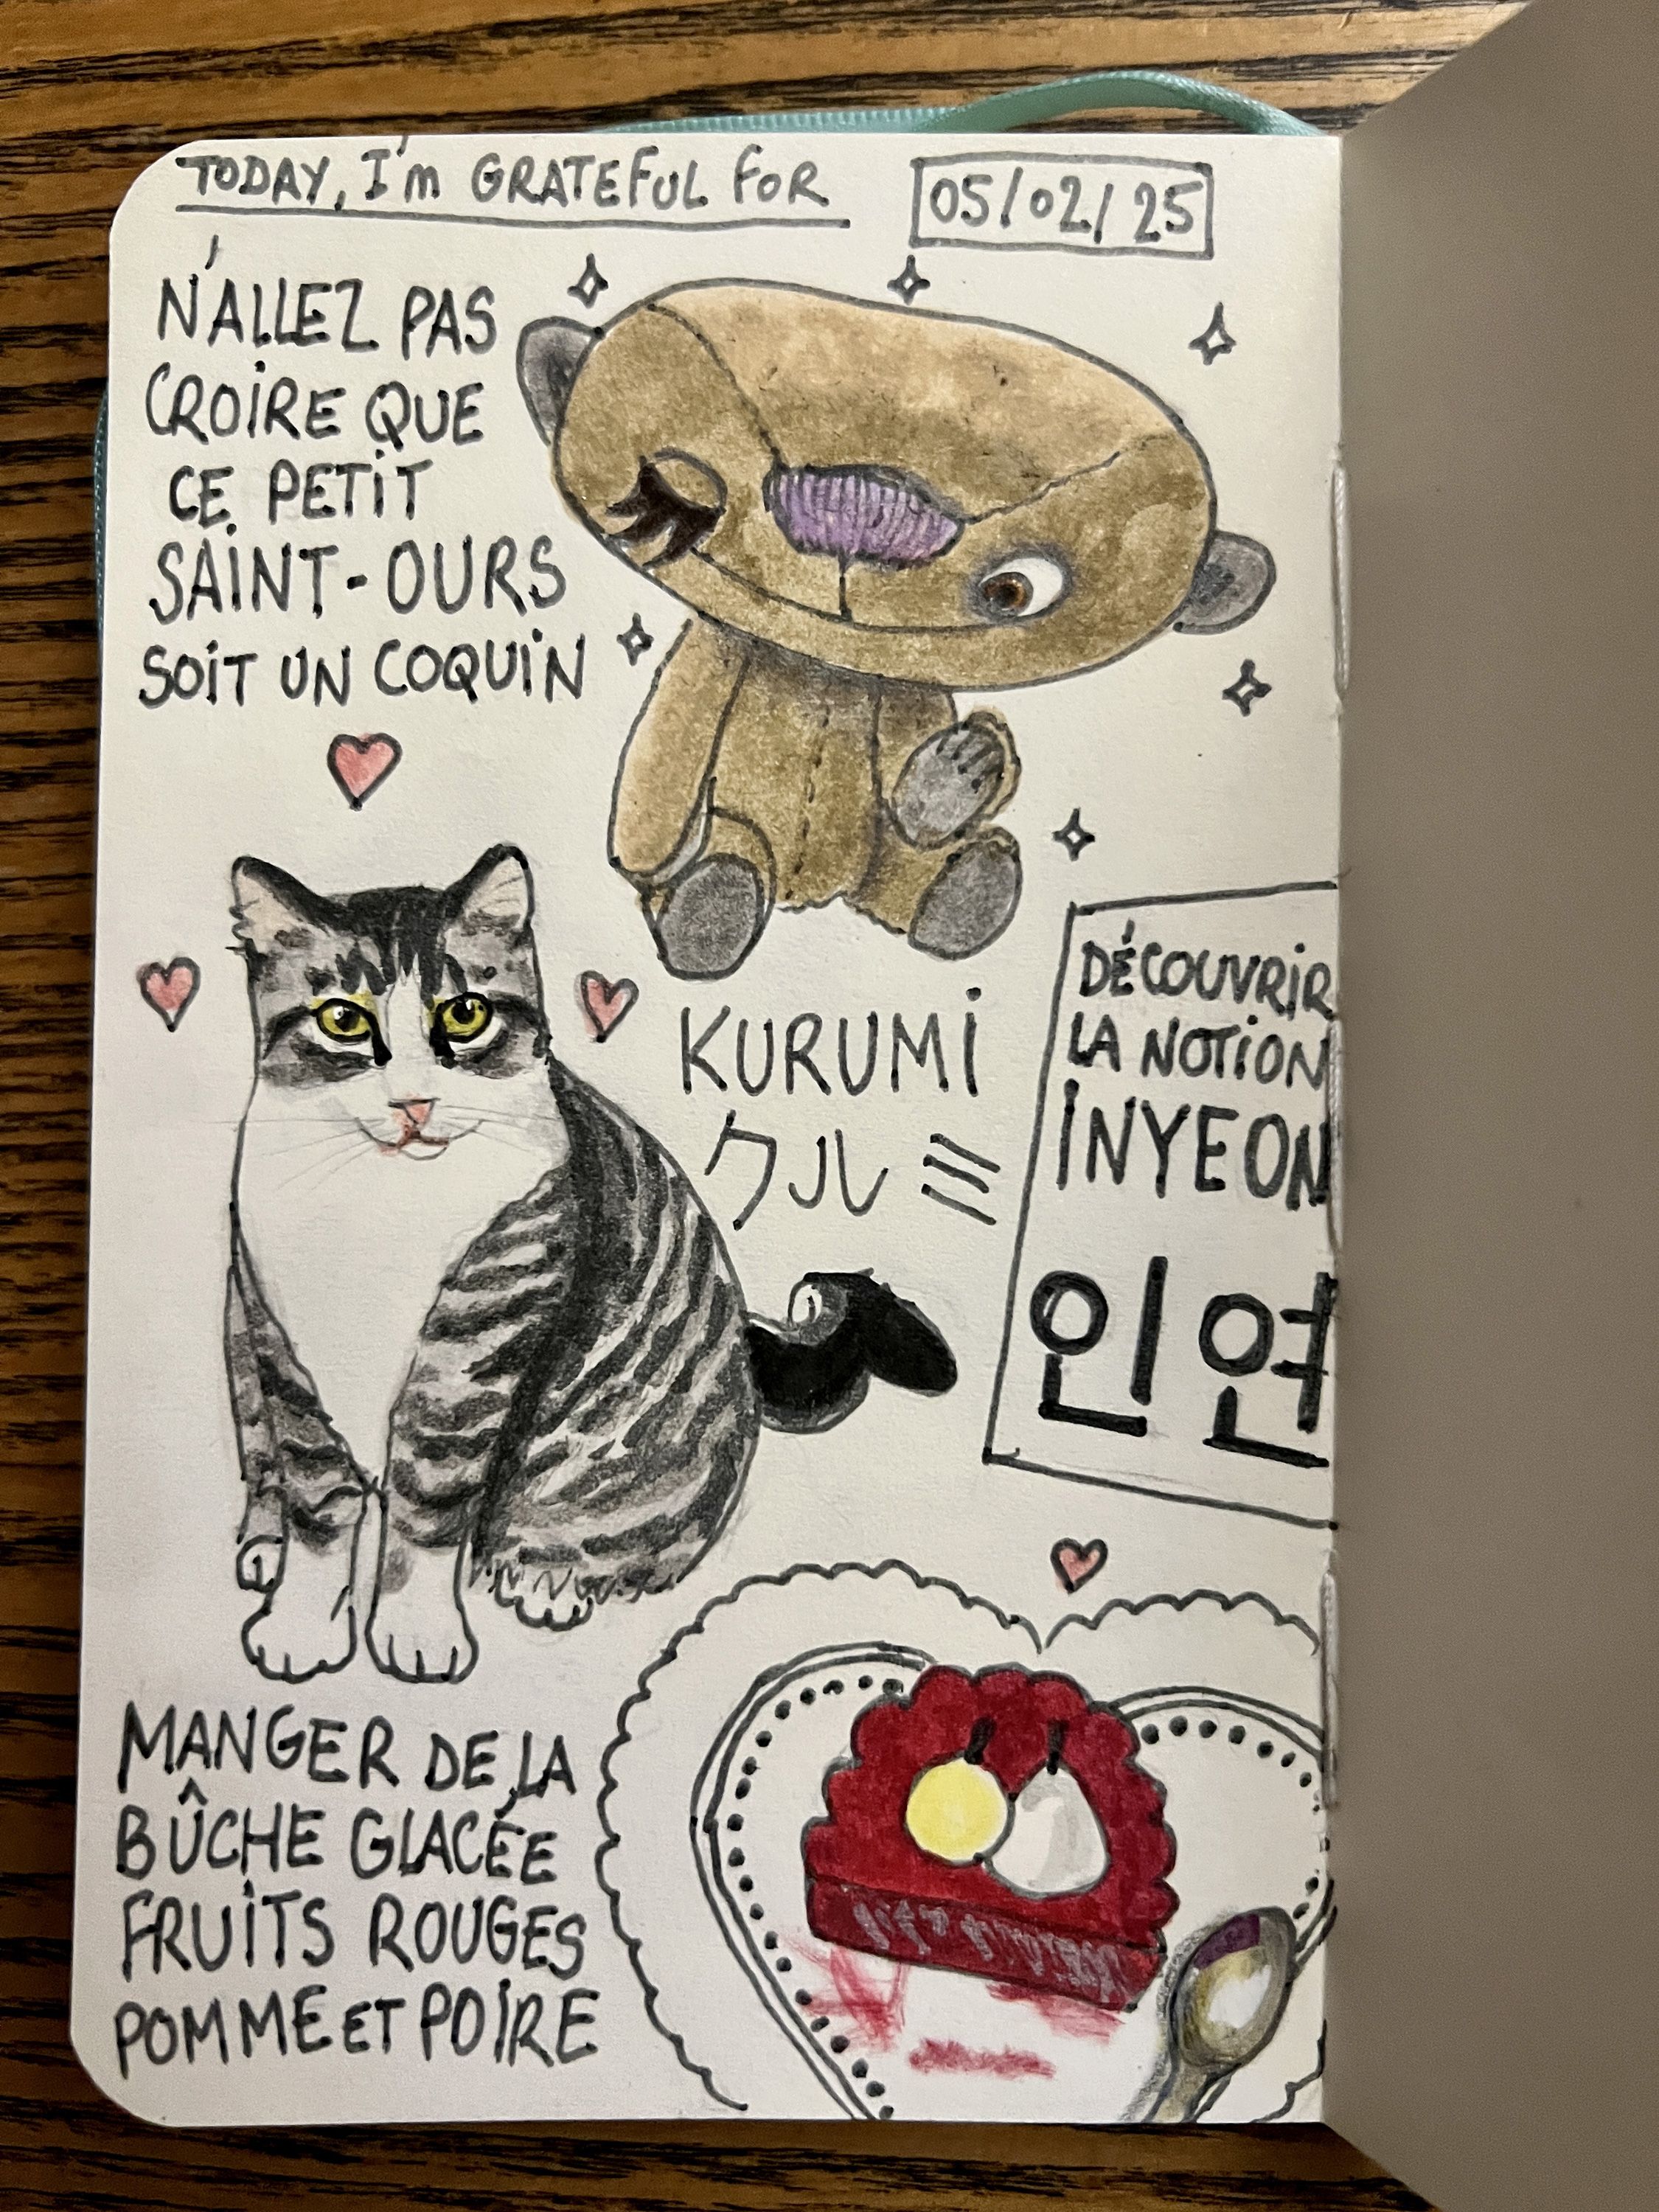 TODAY, I'm GRATEFUL FOR
05/02/25
N'ALLEZ PAS
CROIRE QUE
CE PETIT
SAINT-OURS
SOIT UN COQUIN
KURUMI
クルミ
DÉCOUVRIR
LA NOTION
INYEON
인연
MANGER DE LA
BÛCHE GLACÉE
FRUITS ROUGES
POMME ET POIRE